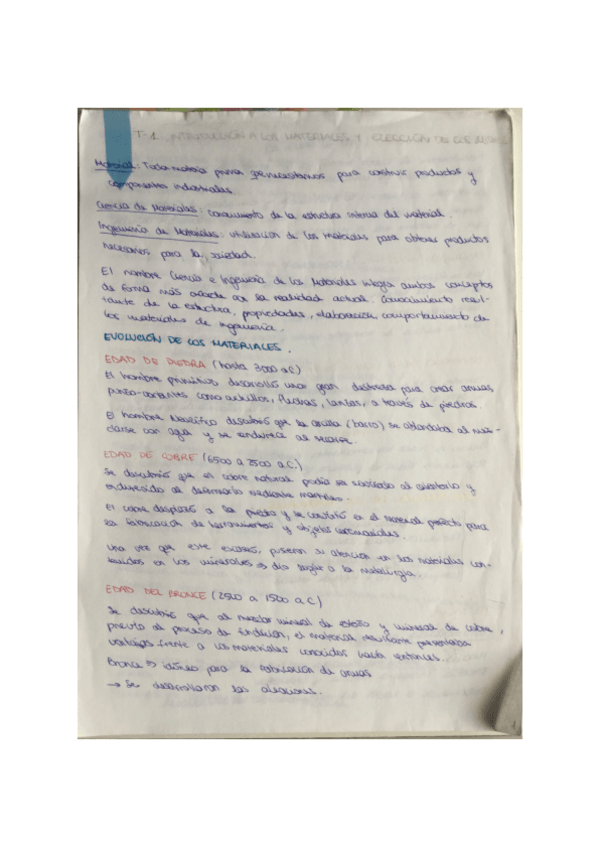 T-1. INTRODUCCIÓN A LOS MATERIALES Y SELECCIÓN DE LOS
Material: Toda materia prima que necesitamos para construir productos y
componentes industriales.
Ciencia de Materiales: conocimiento de la estructura interna del material.
Ingeniería de Materiales: utilización de los materiales para obtener productos
necesarios para la sociedad.
El nombre Ciencia e Ingeniería de los Materiales integra ambos conceptos
de forma más acorde con la realidad actual. Conocimiento
de la estructura, propiedades, elaboración, comportamiento de
los materiales de ingeniería.
EVOLUCIÓN DE LOS MATERIALES.
EDAD DE PIEDRA (hasta 3000 a.C)
El hombre primitivo desarrolló una gran destreza para crear armas
punzo-cortantes como cuchillos, flechas, lanzas, a través de piedras.
El hombre Neolítico descubrió que la arcilla (barro) se ablandaba al mez-
clarse con agua y se endurecía al secarse.
EDAD DE COBRE (6500 a 2500 a.C.)
Se descubrió que el cobre natural podía ser al calentarlo y
endurecido al deformarlo mediante martilleo.
El cobre desplazó a la piedra y se convirtió en el material perfecto para
la fabricación de herramientas y objetos
Una vez que este escaseó, pusieron su atención en los materiales con-
tenidos en los minerales ⇒ dio lugar a la metalurgia.
EDAD DEL BRONCE (2500 a 1500 a.C)
Se descubrió que al mezclar mineral de estaño y mineral de cobre,
previo al proceso de fundición, el material resultante presentaba
ventajas frente a los materiales conocidos hasta entonces.
Bronce ⇒ idóneo para la fabricación de armas
→ Se desarrollaron las aleaciones.